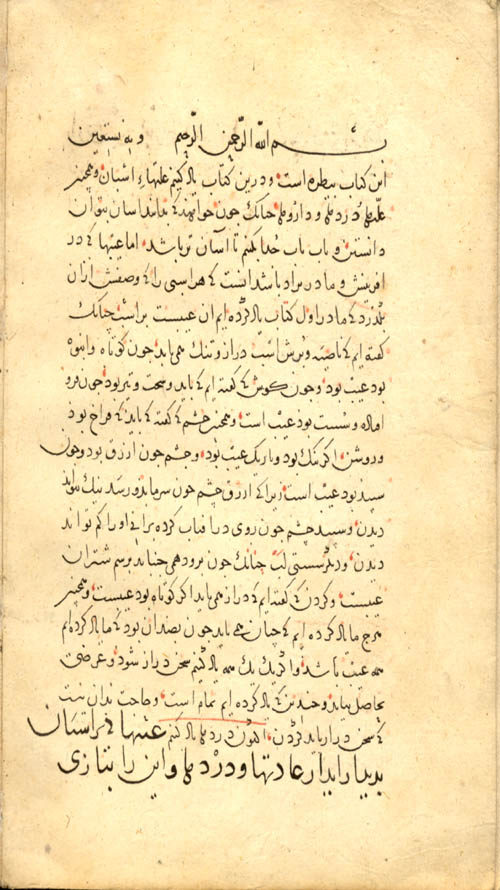 بسم الله الرحمن الرحیم وبه نستعین
این کتاب بیطره است و درین کتاب یاد کنیم علتهاء اسبان و همچنین
دردها و داروها چنانک چون خواهند که بدانند آسان بتوان
دانستن و باب باب جدا بکنیم تا آسان تر باشد اما عیبها که در
افرینش و مادرزاد باشد انست که هر اسبی را که وصفش ازان
بگذرد که ما در اول کتاب یاد کرده ایم ان عیبست بر اسب چنانک
گفته ایم که ناصیه و برش اسب دراز و تنک می باید چون کوتاه و انبوه
بود عیب بود و چون گوش که گفته ایم که باید و سخت و تیز بود چون فرو
افتاده و سست بود عیب است و همچنین چشم که گفته که باید که فراخ بود
و روشن اگر تنک بود و تاریک عیب بود و چشم چون ازرق بود و چون
سپید بود عیب است زیرا که ازرق چشم چون سرما و برف رسد نیک نتواند
دیدن و سپید چشم چون روی در افتاب کرده برانی او را کم تواند
دیدن و دیگر سستی لب چنانک چون برود می جنباند برسم شتران
عیبست و گردن که گفته ایم که دراز می باید اگر کوتاه بود عیبست و همچنین
هرچ ما یاد کرده ایم که چنان می باید چون بضد ان بود که ما یاد کرده ایم
همه عیب باشد و اگر یک یک همه یاد کنیم سخن دراز شود و غرضی
بحاصل نیاید و چندین که یاد کرده ایم تمام است و حاجت بدان نیست
که سخن دراز باید کردن اکنون دردها یاد کنیم عیبها که بر اسبان
پدیدار اید از عادتها و دردها و این را بتازی